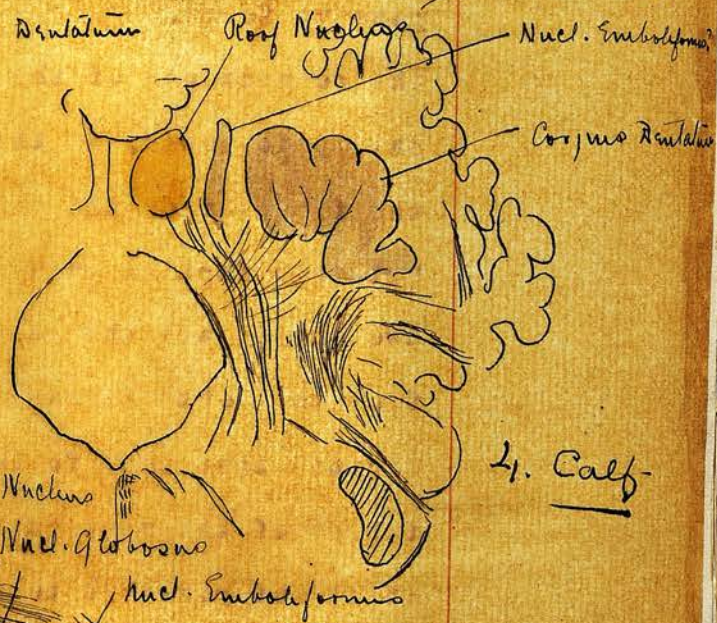 Dentatum
Roof Nucleus
Nucl. Emboliformis
Corpus Dentatum
4. Calf
Nucleus
Nucl. Globosus
Nucl. Emboliformis